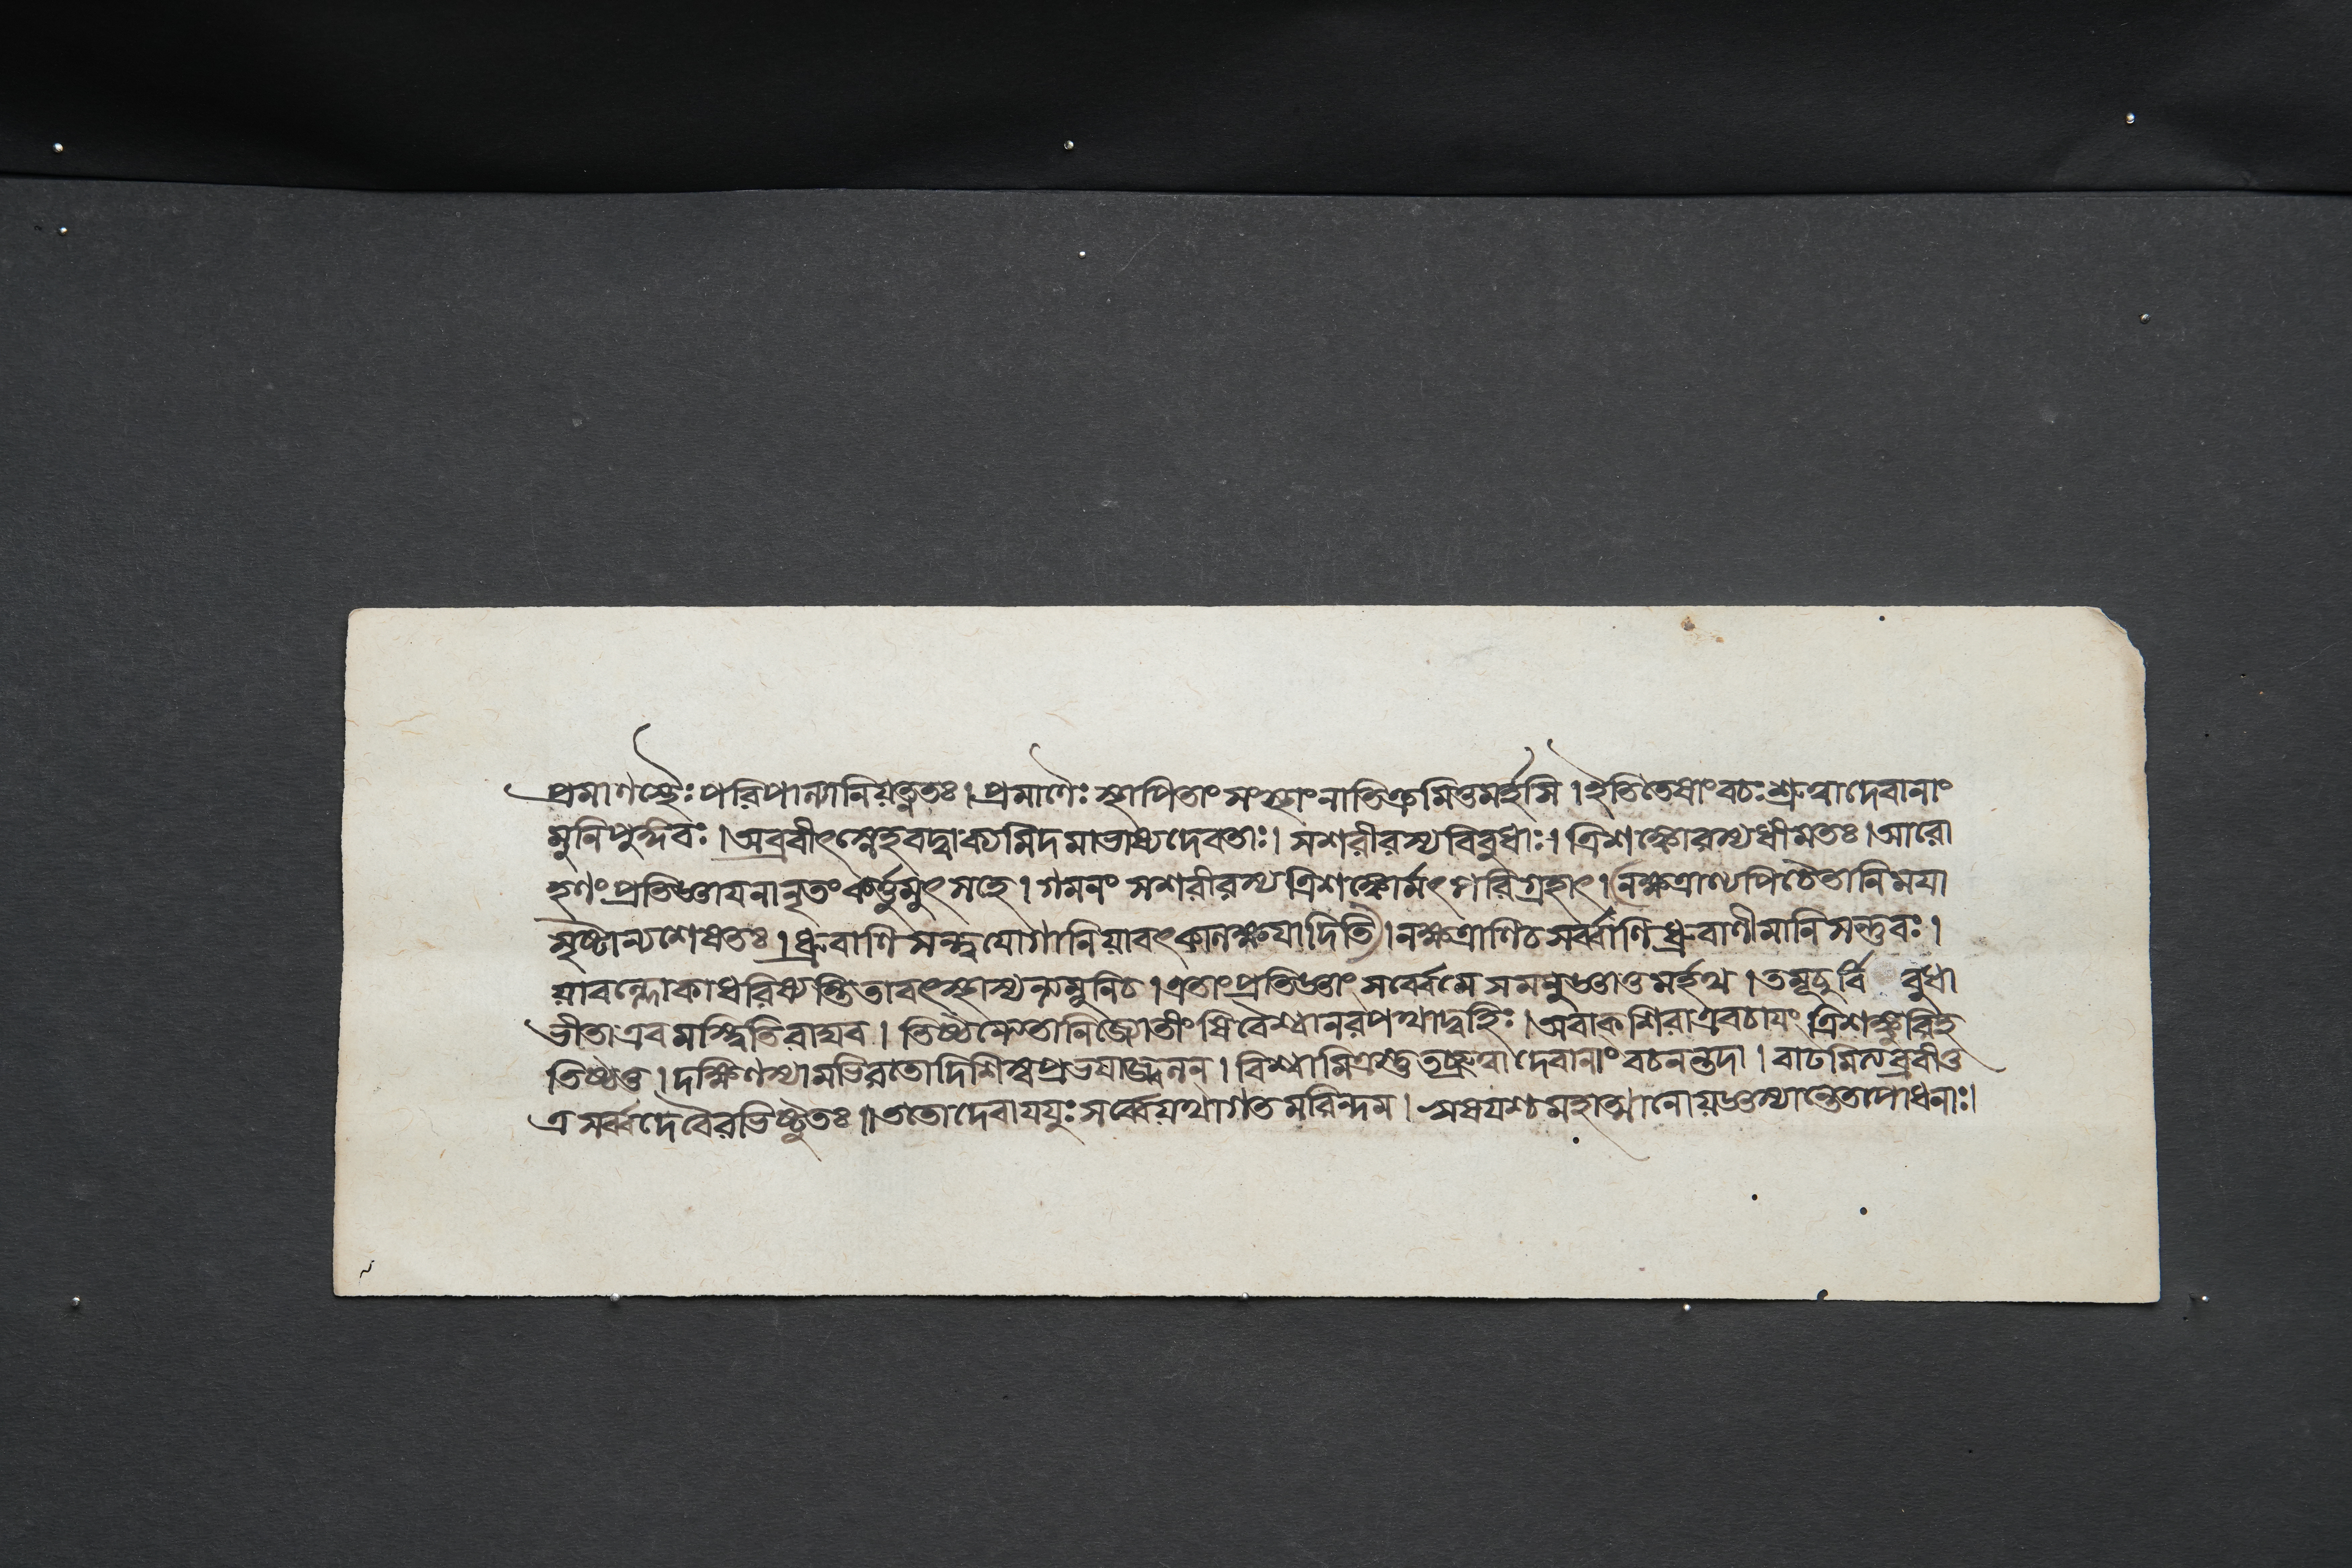 প্রমাণস্থৈঃ পরিপাল্যানি যত্নতঃ। প্রমাণৈঃ স্থাপিতাং সংস্থাং নাতিক্রমিতুমর্হসি। ইতি তেষাং বচঃ শ্রুত্বা দেবানাং
মুনিপুঙ্গবঃ। অব্রবীৎ স্নেহবদ্বাক্যমিদমাভাষ্য দেবতাঃ। সশরীরস্য বিবুধাঃ। ত্রিশঙ্কোরস্য ধীমতঃ। আরো
হণং প্রতিজ্ঞায় নানৃতং কর্ত্তুমুৎসহে। গমনং সশরীরস্য ত্রিশঙ্কোর্মৎপরিগ্রহাৎ। (নক্ষত্রাণ্যপি চৈতানি ময়া
সৃষ্টান্যশেষতঃ। ধ্রুবাণি সন্তু যোগানি যাবৎ কালক্ষয়াদিতি)। নক্ষত্রাণি চ সর্ব্বাণি ধ্রুবাণীমানি সন্তু বঃ।
যাবল্লোকা ধরিষ্যন্তি তাবৎ স্থাস্যন্ত্যমুনি চ। এতাং প্রতিজ্ঞাং সর্ব্বে মে সমনুজ্ঞাতুমর্হথ। তমূচুর্বি বুধা
ভীতা এবমস্ত্বিতি রাঘব। তিষ্ঠন্ত্বেতানি জ্যোতীংষি বৈশ্বানরপথাদ্বহিঃ। অবাকশিরা এব চায়ং ত্রিশঙ্কুরিহ
তিষ্ঠতু। দক্ষিণস্যামভিরতো দিশি স্বপ্রভয়া জ্বলন্। বিশ্বামিত্রস্তু তচ্ছ্রুত্বা দেবানাং বচনন্তদা। বাঢমিত্যব্রবীত্ত
ত্র সর্ব্বদেবৈরভিষ্টুতঃ॥ ততো দেবা যযুঃ সর্ব্বে যথাগতমরিন্দম। ঋষয়শ্চ মহাত্মানো যজ্ঞস্যান্তে তপোধনাঃ।